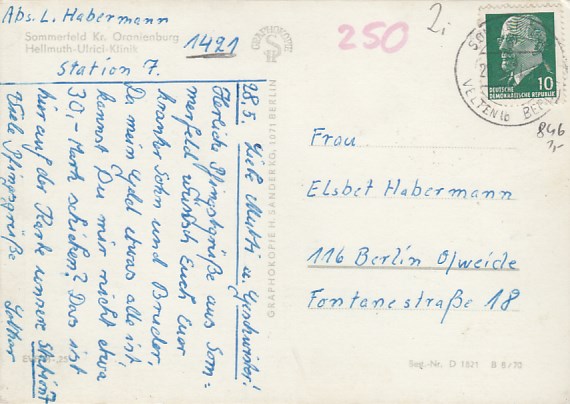 Abs. L. Habermann
Sommerfeld Kr. Oranienburg
Hellmuth-Ulrici-Klinik
1421
Station 7.
28,5. Liebe Mutti u. Geschwister!
Herliche Pfingstgrüße aus Som-
merfeld wünsch Euch Euer
kranker Sohn und Bruder,
Da mein Geld etwas alle ist,
kannst Du mir nicht etwa
30,- Mark schicken? Das ist
hir auf der Karte unsere Station 7
Viele Pfingsgrüße Lothar
GRAPHOKOPIE H. SANDER KG, 1071 BERLIN
GRAPHOKOPIE
250
2,
DEUTSCHE
DEMOKRATISCHE REPUBLIK
10
VELTEN
846
3,-
Frau
Elsbet Habermann
116 Berlin O/weide
Fontanestraße 18
Reg.-Nr. D 1821 B 8/70